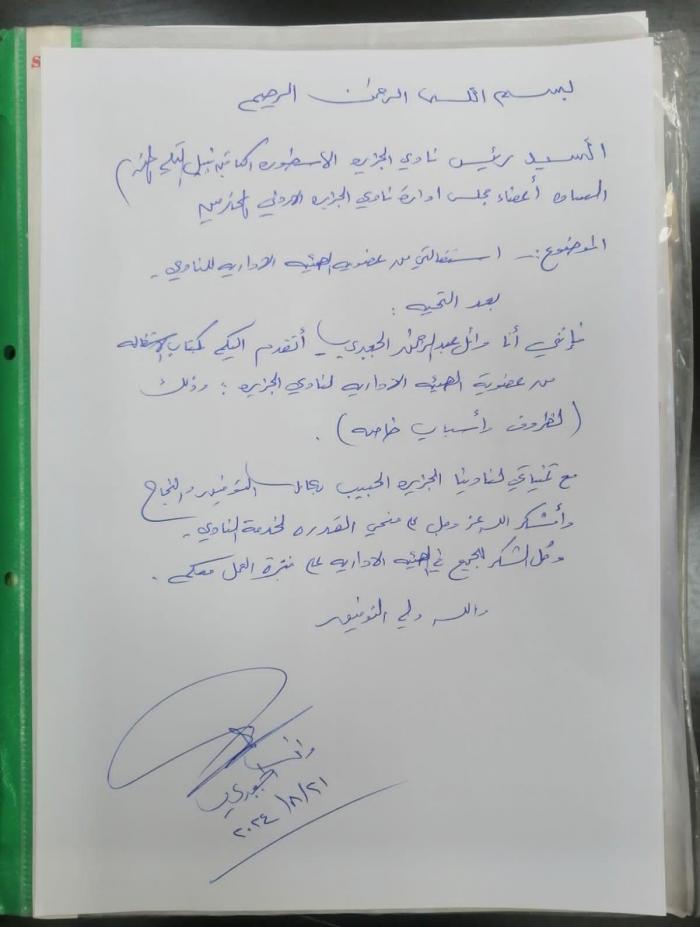 بسم الله الرحمن الرحيم
السيد رئيس نادي الجزيره الاسطوره الكابتن نبيل التلي المحترم
الساده أعضاء مجلس ادارة نادي الجزيره الاردني المحترمين
الموضوع :- استقالتي من عضوية الهيئه الاداريه للنادي .
بعد التحيه :
فإنني أنا وائل عبدالرحمن الجعبري أتقدم اليكم بكتاب الاستقاله
من عضوية الهيئه الاداريه لنادي الجزيره ؛ وذلك
(لظروف وأسباب خاصه) .
مع تمنياتي لنادينا الجزيره الحبيب بكل التوفيق والنجاح
وأشكر الله عز وجل على منحي القدره لخدمة النادي .
وكل الشكر للجميع في الهيئه الاداريه على فترة العمل معكم .
والله ولي التوفيق
وائل
الجعبري
٢٠٢٤/٨/٢١